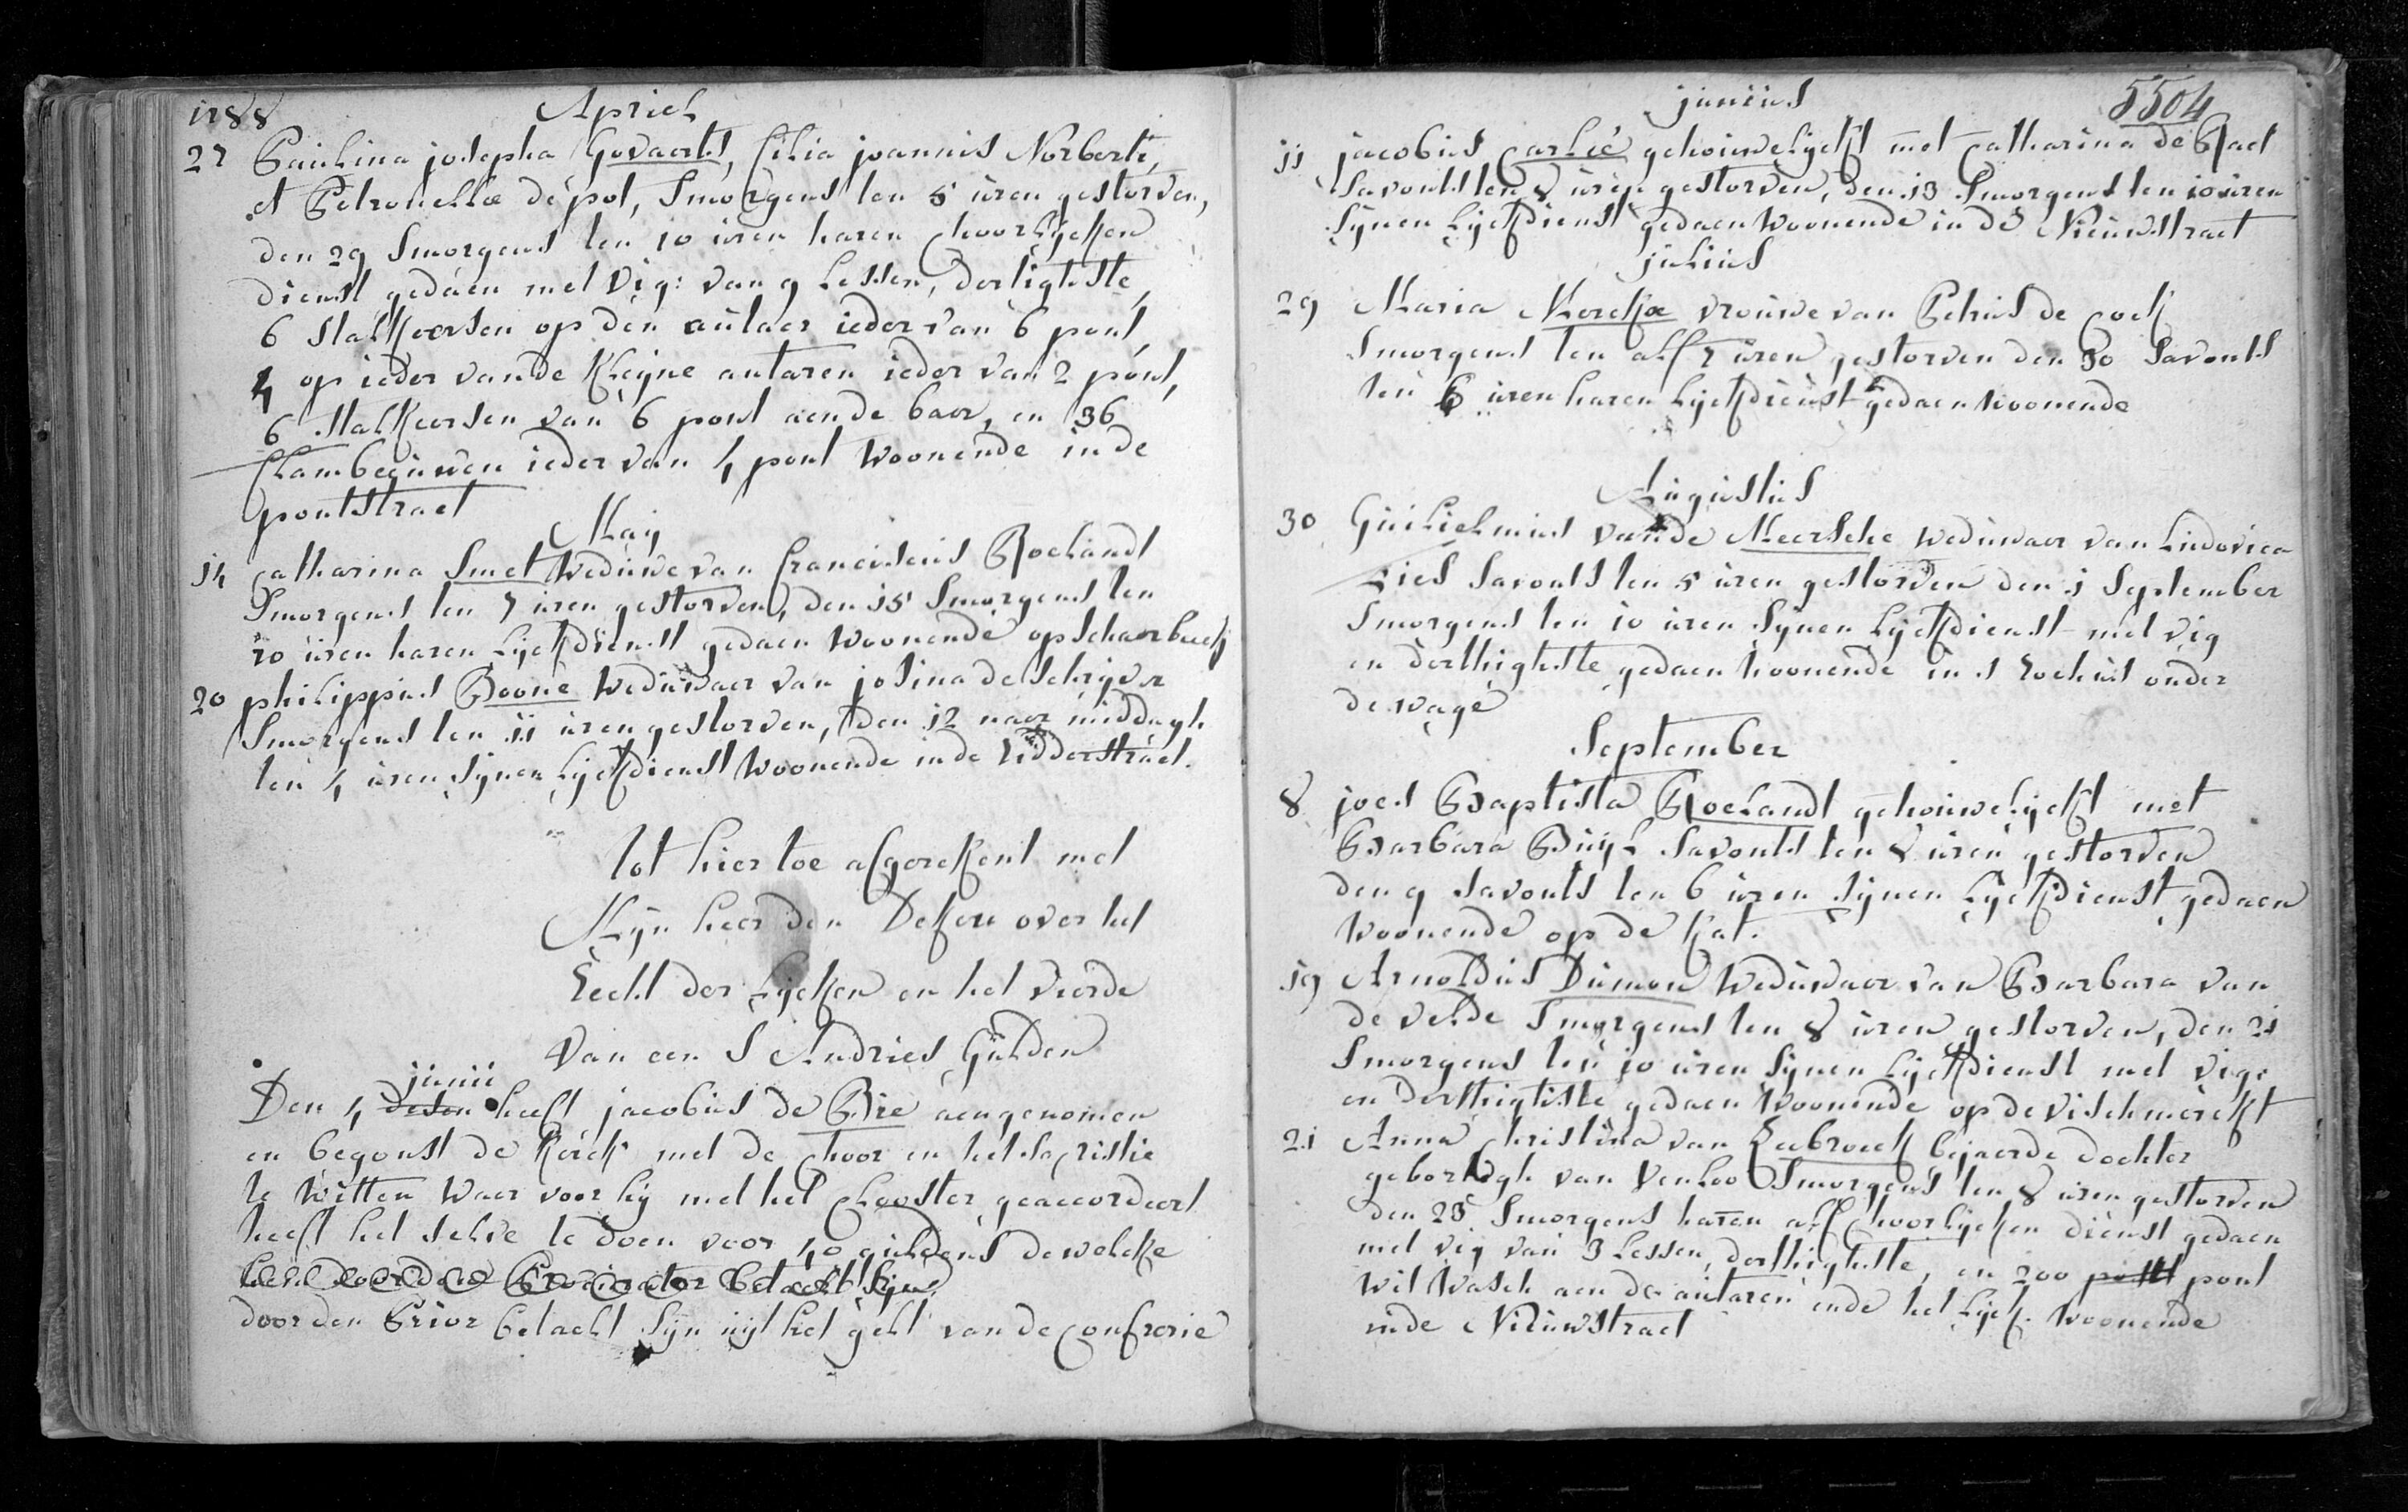 1788 April
27 Paulina josepha Govaerts, filia joannis Norberti,
et Petronellæ de pot, Smorgens ten 5 uren gestorven,
den 29 Smorgens ten 10 uren haren choorlycken
dienst gedaen met vig: van 9 Lessen, dertighste,
6 stalkeersen op den autaer ieder van 6 pont,
4 op ieder vande kleyne autaren ieder van 2 pont,
6 stalkeersen van 6 pont aende baer, en 36
flambeeuwen ieder van 4 pont woonende in de
pontstraet
May
14 catharina Smet weduwe van franciscus Roelandt
Smorgens ten 7 uren gestorven, den 15 Smorgens ten
10 uren haren Lyckdienst gedaen woonende op schaerbeeck
20 philippus Boone weduwaer van josina de schryver
Smorgens ten 11 uren gestorven, den 12 naer middagh
ten 4 uren synen Lyckdienst woonende inde ridderstraet.
tot hier toe afgerekent met
Myn heer den Deken over het
recht der Lycken en het vierde
van een S Andries Gulden
junii
Den 4 desen heeft jacobus de Bie aengenomen
en begonst de kerck met de choor en het sacristie
te witten waer voor hy met het clooster geaccordeert
heeft het selve te doen voor 40 guldens dewelcke
door den Prior betaelt syn uyt het gelt van de confrerie
5504
junius
11 jacobus Carlié gehouwelyckt met catharina de Rael
Savonts ten 8 uren gestorven, den 13 Smorgens ten 10 uren
synen Lyckdienst gedaen woonende in de Nieuwstraet
julius
29 Maria Merckx vrouwe van Petrus de cock
Smorgens ten alf 7 uren gestorven den 30 Savonts
ten 6 uren haren Lyckdienst gedaen woonende
Augustus
30 Guilielmus vande Meersche weduwaer van Ludovica
Lies Savonts ten 5 uren gestorven den 1 September
Smorgens ten 10 uren synen Lyckdienst met vig
en derthighste gedaen woonende in s rochus onder
de wage
September
8 joes Baptista Roelandt gehouwelyckt met
Barbara Buyl Savonts ten 8 uren gestorven
den 9 Savonts ten 6 uren synen Lyckdienst gedaen
woonende op de kat.
19 Arnoldus Dumon weduwaer van Barbara van
de velde Smorgens ten 8 uren gestorven, den 21
Smorgens ten 10 uren synen Lyckdienst met vig:
en derthighste gedaen woonende op de vischmerckt
21 Anna christina van Leebroeck bejaerde dochter
geborthigh van Venloo Smorgens ten 8 uren gestorven
den 23 Smorgens haren alf choorlycken dienst gedaen
met vig van 3 Lessen, derthighste, en 200 pont
wit wasch aen de autaren ende het Lyck. woonende
inde Nieuwstraet